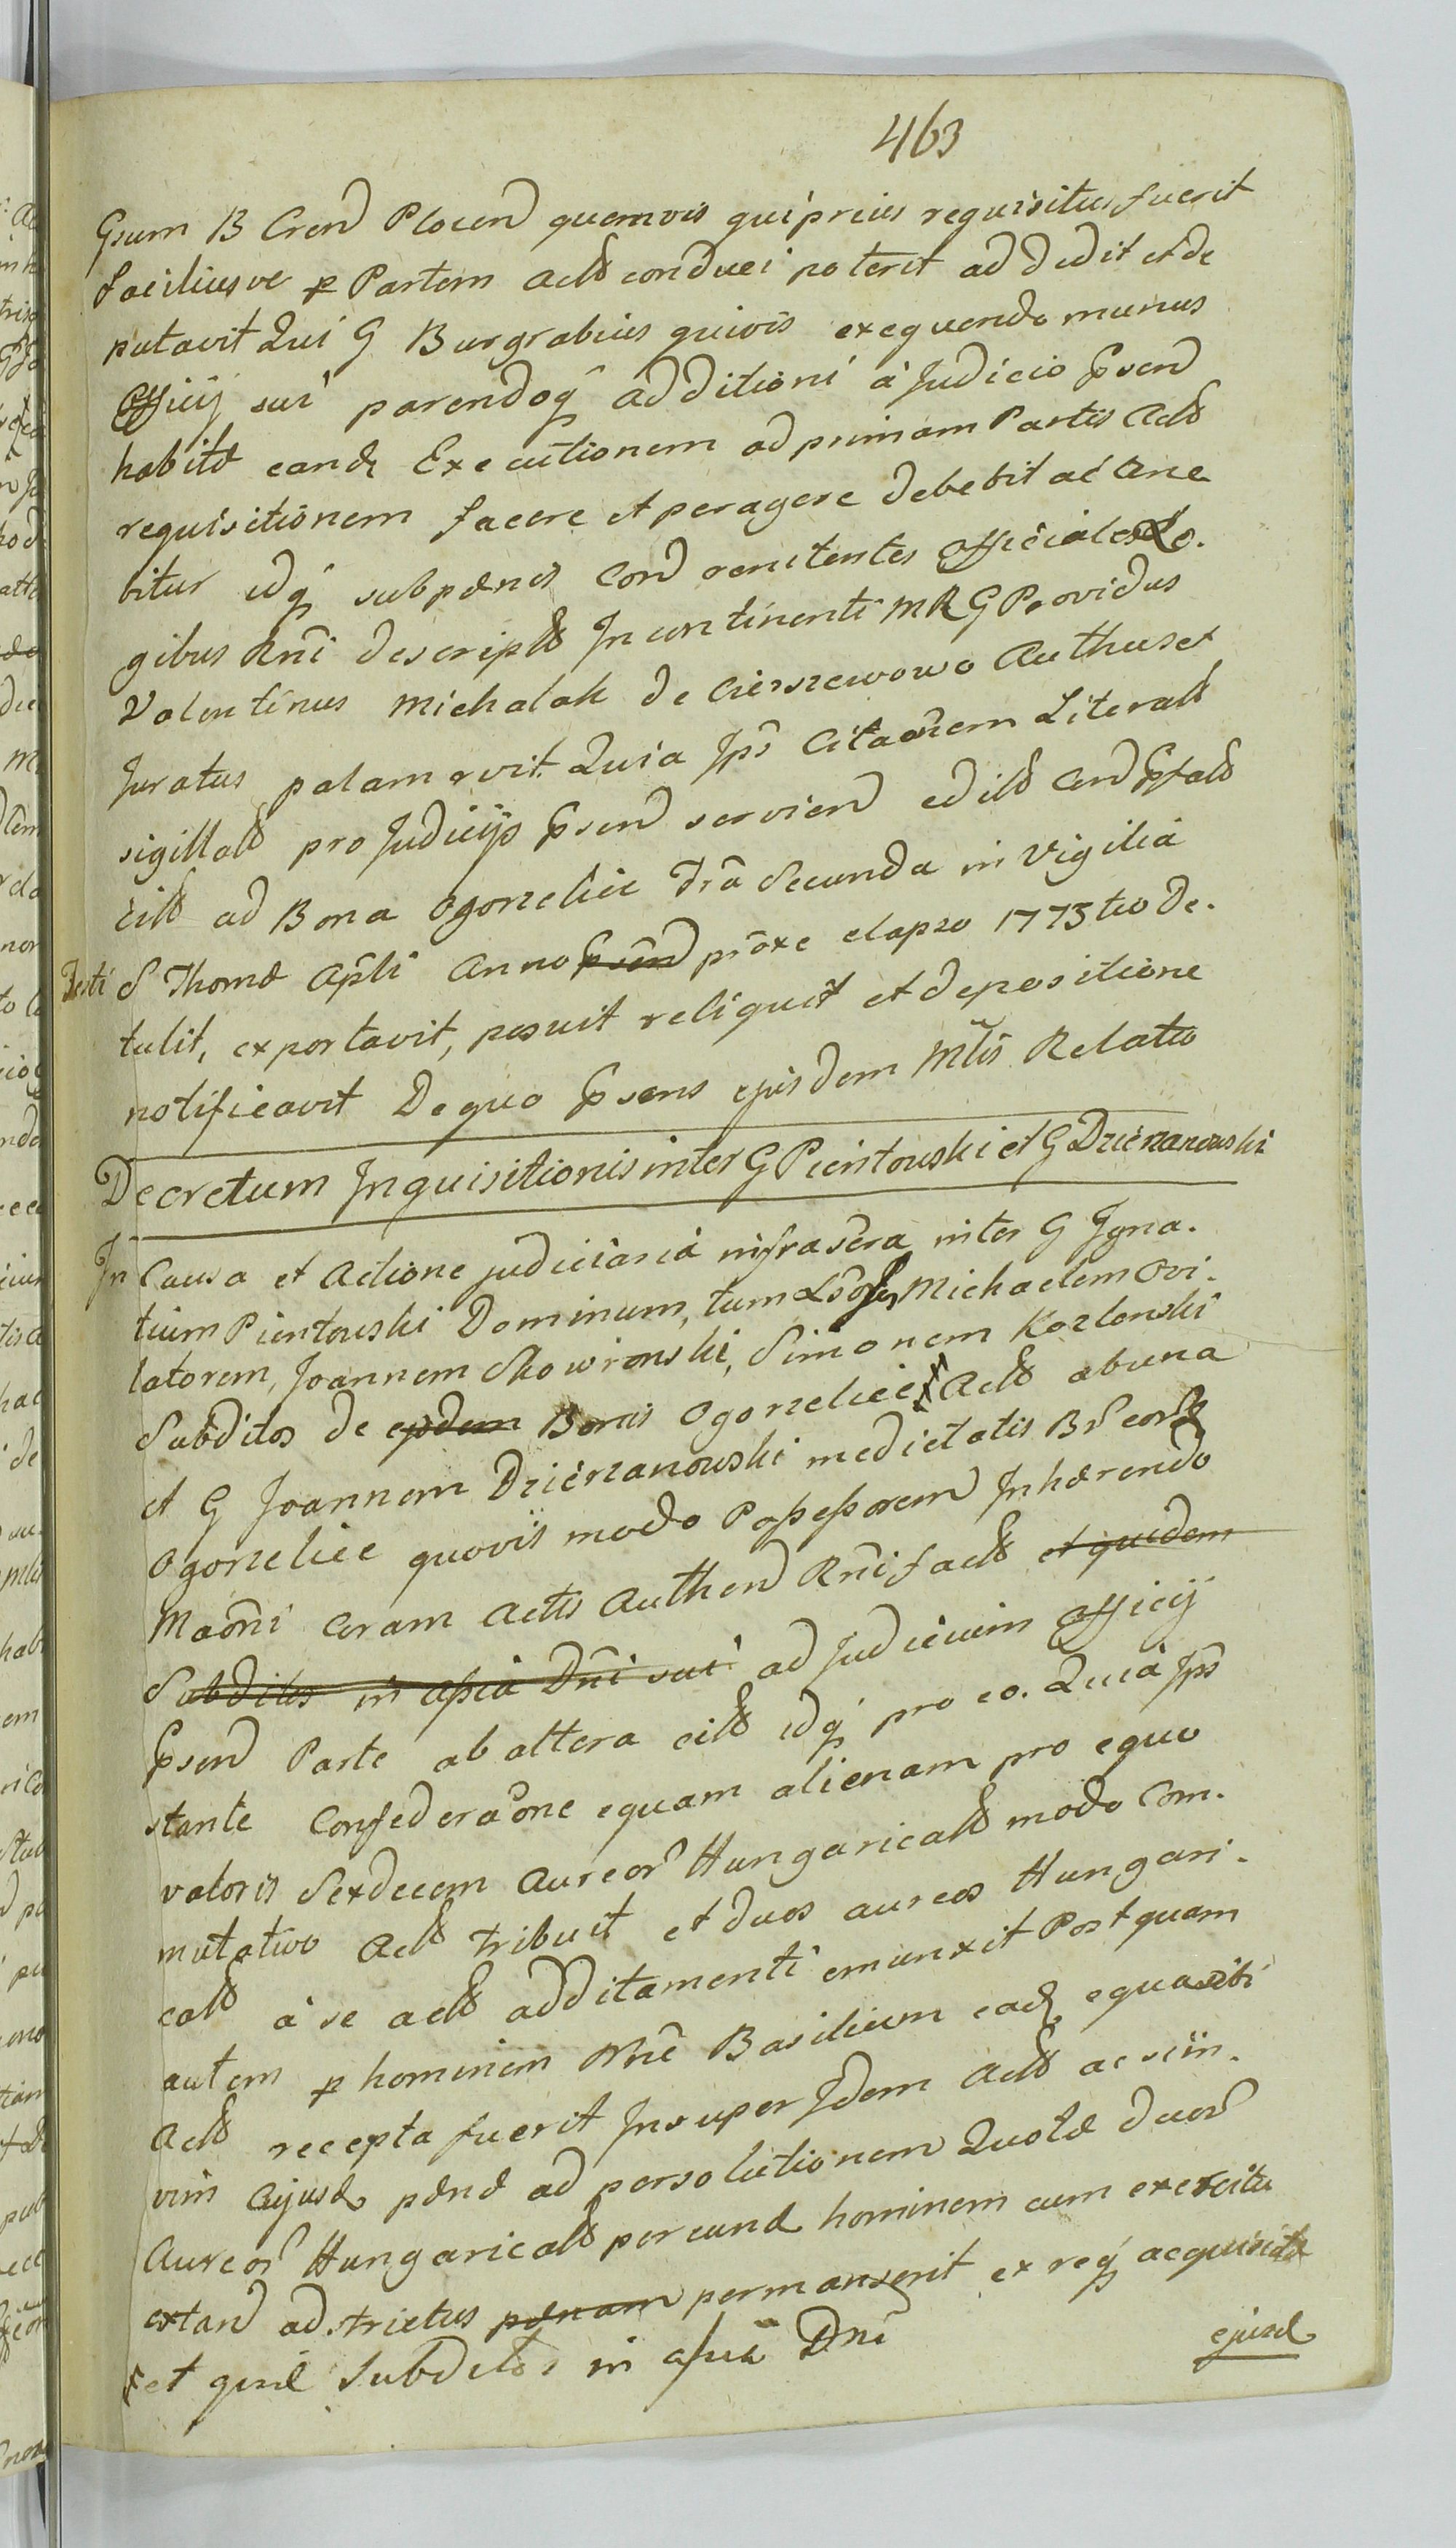 463
Gsum B Cren Plocen quemvis qui prius requisitus fuerit
faciliusve p Partem act conduci poterit addidit et de
putavit Qui G Burgrabius quivis exequendo munus
Officij sui parendoq additioni à Judicio Psen
habitæ eand Executionem ad primam Partis Act
requisitionem facere et peragere debebit ac tene
bitur idq sub pænis Con renitentes Officiales Le.
gibus Rni descript In continenti MRG Providus
Valentinus Michalak de Cierszewowo Authus et
Juratus palam rvit Quia Ips Citaõnem Literalt
sigillat pro Judicijs Psen servien edit Cen Psfat
cit ad Bona Ogorzelice Dra Secunda in Vigilia
Festi S Thomæ Apli Anno Psen proxe elapso 1773tio De.
tulit, exportavit, posuit reliquit et depositione
notificavit De quo Psens ejusdem Mlis Relatio
Decretum Inquisitionis inter G Pientowski et G Dzierzanowski
In Causa et Actione judiciaria infrascra inter G Igna.
tium Pientowski Dominum, tum Lsos Michaelem Ovi.
latorem, Joannem Skowronski, Simonem Kozlowski
Subditos de ejsdem Bonis Ogorzelice Act ab una
et G Joannem Dzierzanowski medietatis B eor
Ogorzelice quovis modo Possessorem Inhærendo
Maõni Coram Actis Authen Rni fact et quidem
Subditos in assia Dni sui ad Judicium Officij
Psen Parte ab altera cit idq pro eo. Quia Ips
stante Confederaõne equam alienam pro equo
valoris Sexdecem Aureor Hungaricalt modo Com.
mutativo Act tribuit et duos aureos Hungari.
calt à se act additamenti emunxit Postquam
autem p hominem Nne Basilium ead equa sibi
Act recepta fuerit Insuper Idem Act ac si in.
vim Cujusd pænæ ad persolutionem Quotæ duor
Aureor Hungaricalt per eund hominem cum exercitu
extan adstrictus pænam permanserit ex req acquisita
et quid Subditos in assia Dni
ejusd